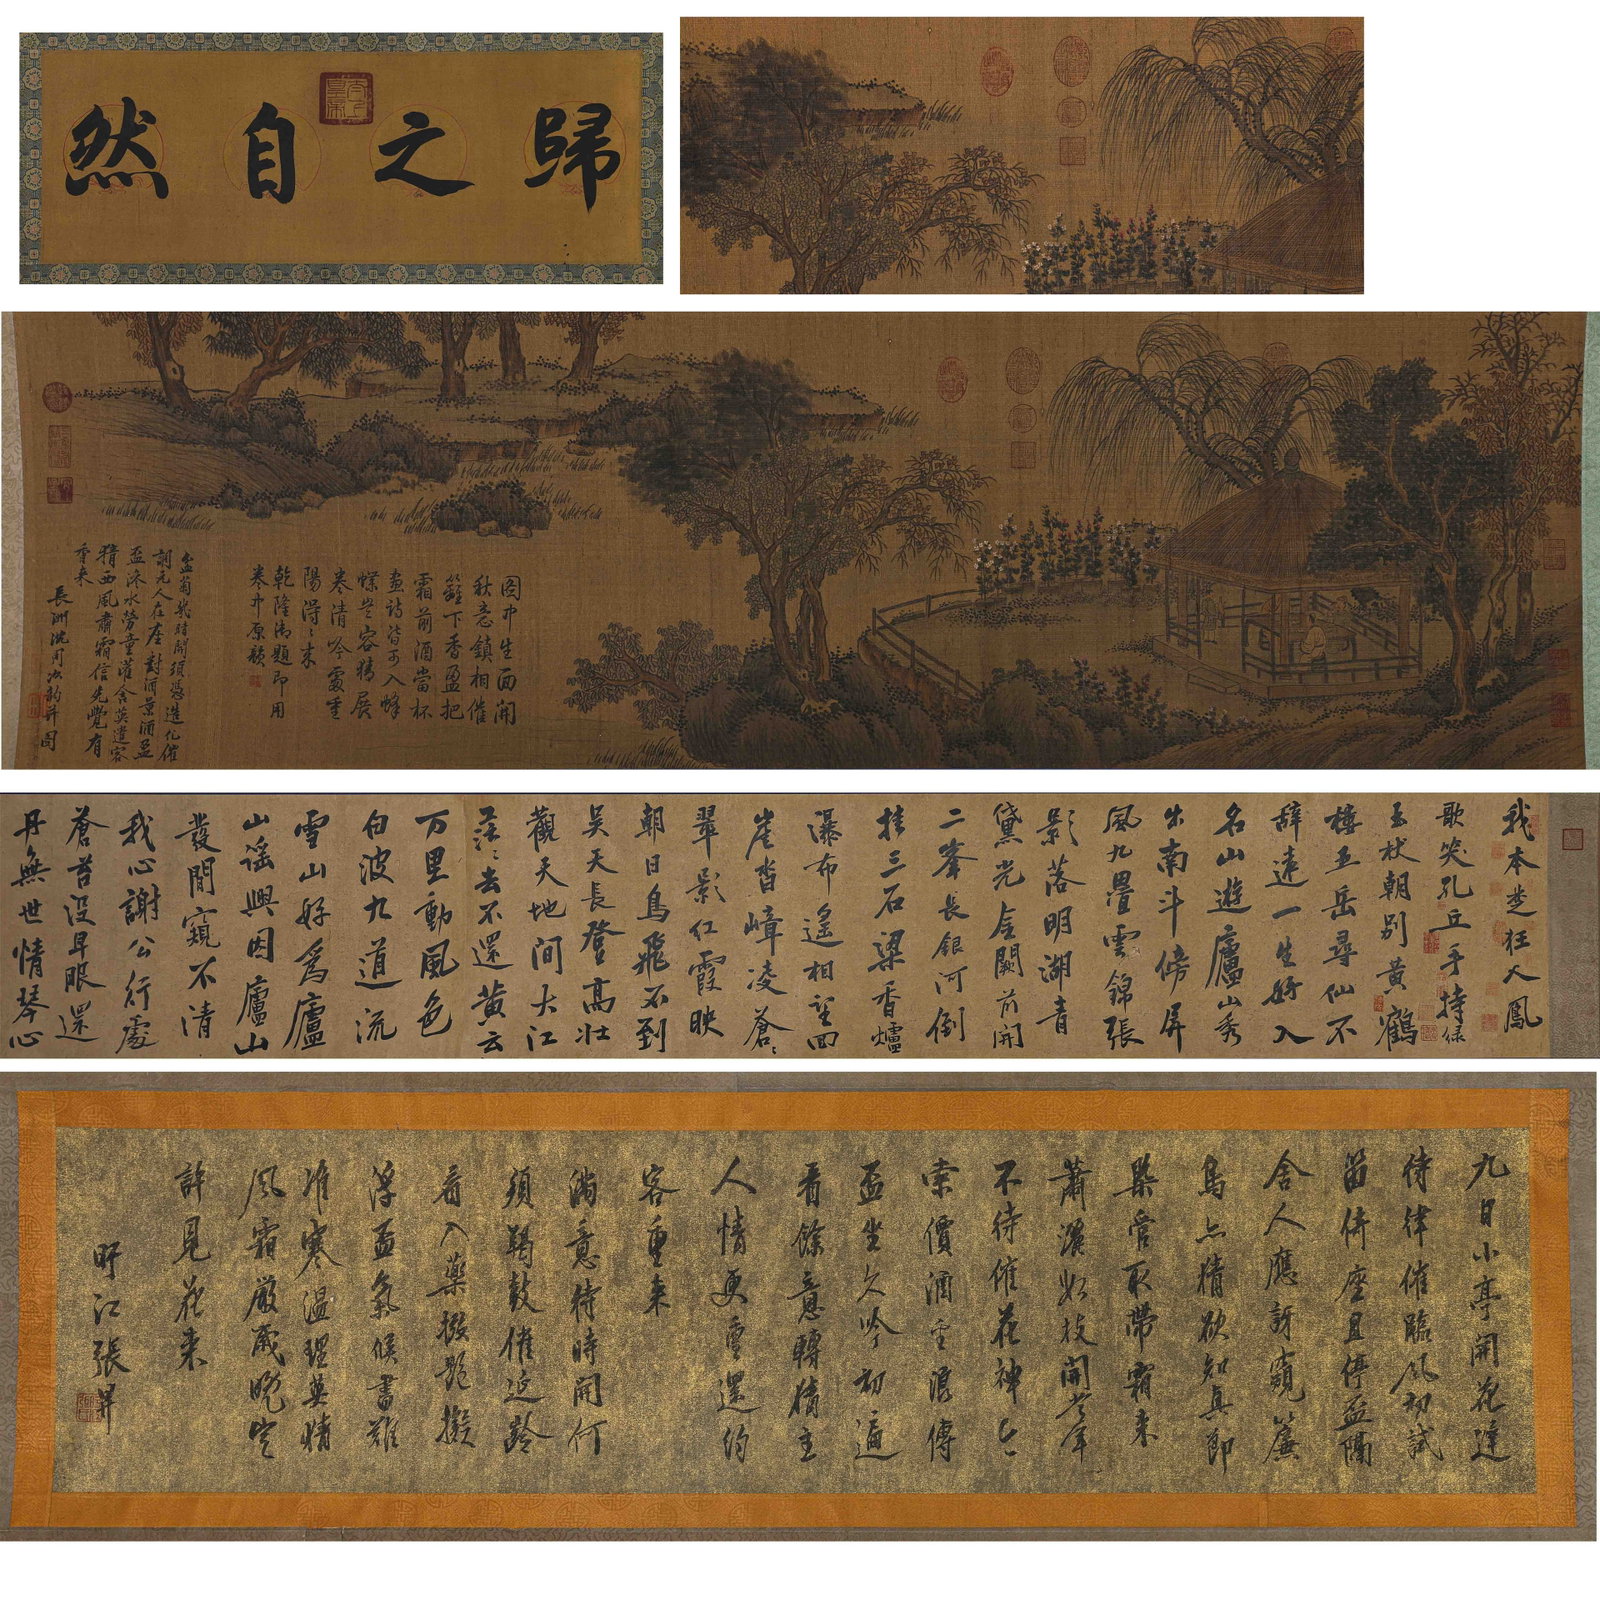 歸之自然
图中生面開
秋意鎮相催
籬下香盈把
霜前酒當杯
畫詩皆可入蜂
蝶豈容猜展
卷清吟處重
陽得々来
乾隆御題即用
卷中原韻
盆菊幾時開須憑造化催
詞元人在座對酒景酒盃
盃泳水勞童灌含英遣客
猜西風肅霜信先覺有
香来
長洲沈周次韵并圖
我本楚狂人鳳
歌笑孔丘手持緑
玉杖朝别黄鶴
樓五岳尋仙不
辞遠一生好入
名山遊廬山秀
出南斗傍屏
風九疊雲錦張
影落明湖青
黛光金闕前開
二峯長銀河倒
挂三石梁香爐
瀑布遙相望回
崖沓嶂凌蒼々
翠影红霞映
朝日鳥飛不到
吴天長登高壮
觀天地間大江
茫々去不還黄云
万里動風色
白波九道流
雪山好為廬
山謡興因廬山
發閒窺不清
我心謝公行處
蒼苔没早眼還
丹無世情琴心
九日小亭開花逢
待律催臨风初試
笛倚座且停盃隔
舍人應訝窺簾
鳥亦猜欲知真即
樂管取帶霜来
蕭如枝開年
不待催花神
索價酒聖浪傳
盃坐久吟初遍
看餘意轉猜主
人情更重還约
客重来
滿意待時開何
須羯鼓催延齡
看入藥撥艶擬
浮盃氣候書難
准寒温理莫猜
风霜嚴歲晚定
許見花来
旴江張昇